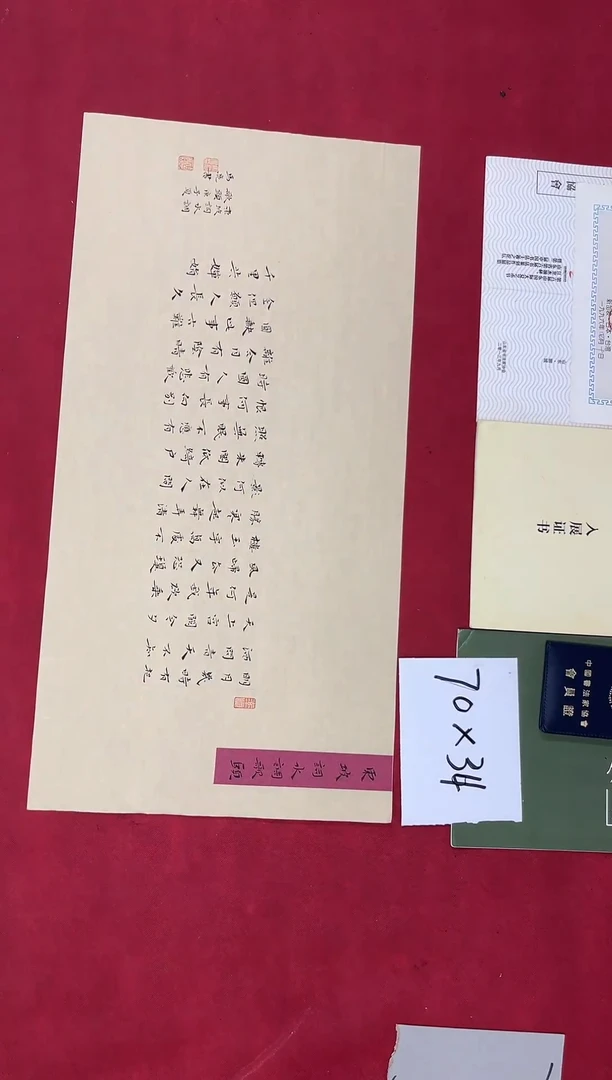 東坡詞水調歌頭
明月幾時有把
酒問青天不知
天上宮闕今夕
是何年我欲乘
風歸去又恐瓊
樓玉宇高處不
勝寒起舞弄清
影何似在人間
轉朱閣低綺戶
照無眠不應有
恨何事長向別
時圓人有悲歡
離合月有陰晴
圓缺此事古難
全但願人長久
千里共嬋娟
東坡詞水調
歌頭庚子夏
70×34
協會
入展证书
中國書法家協會
會員證